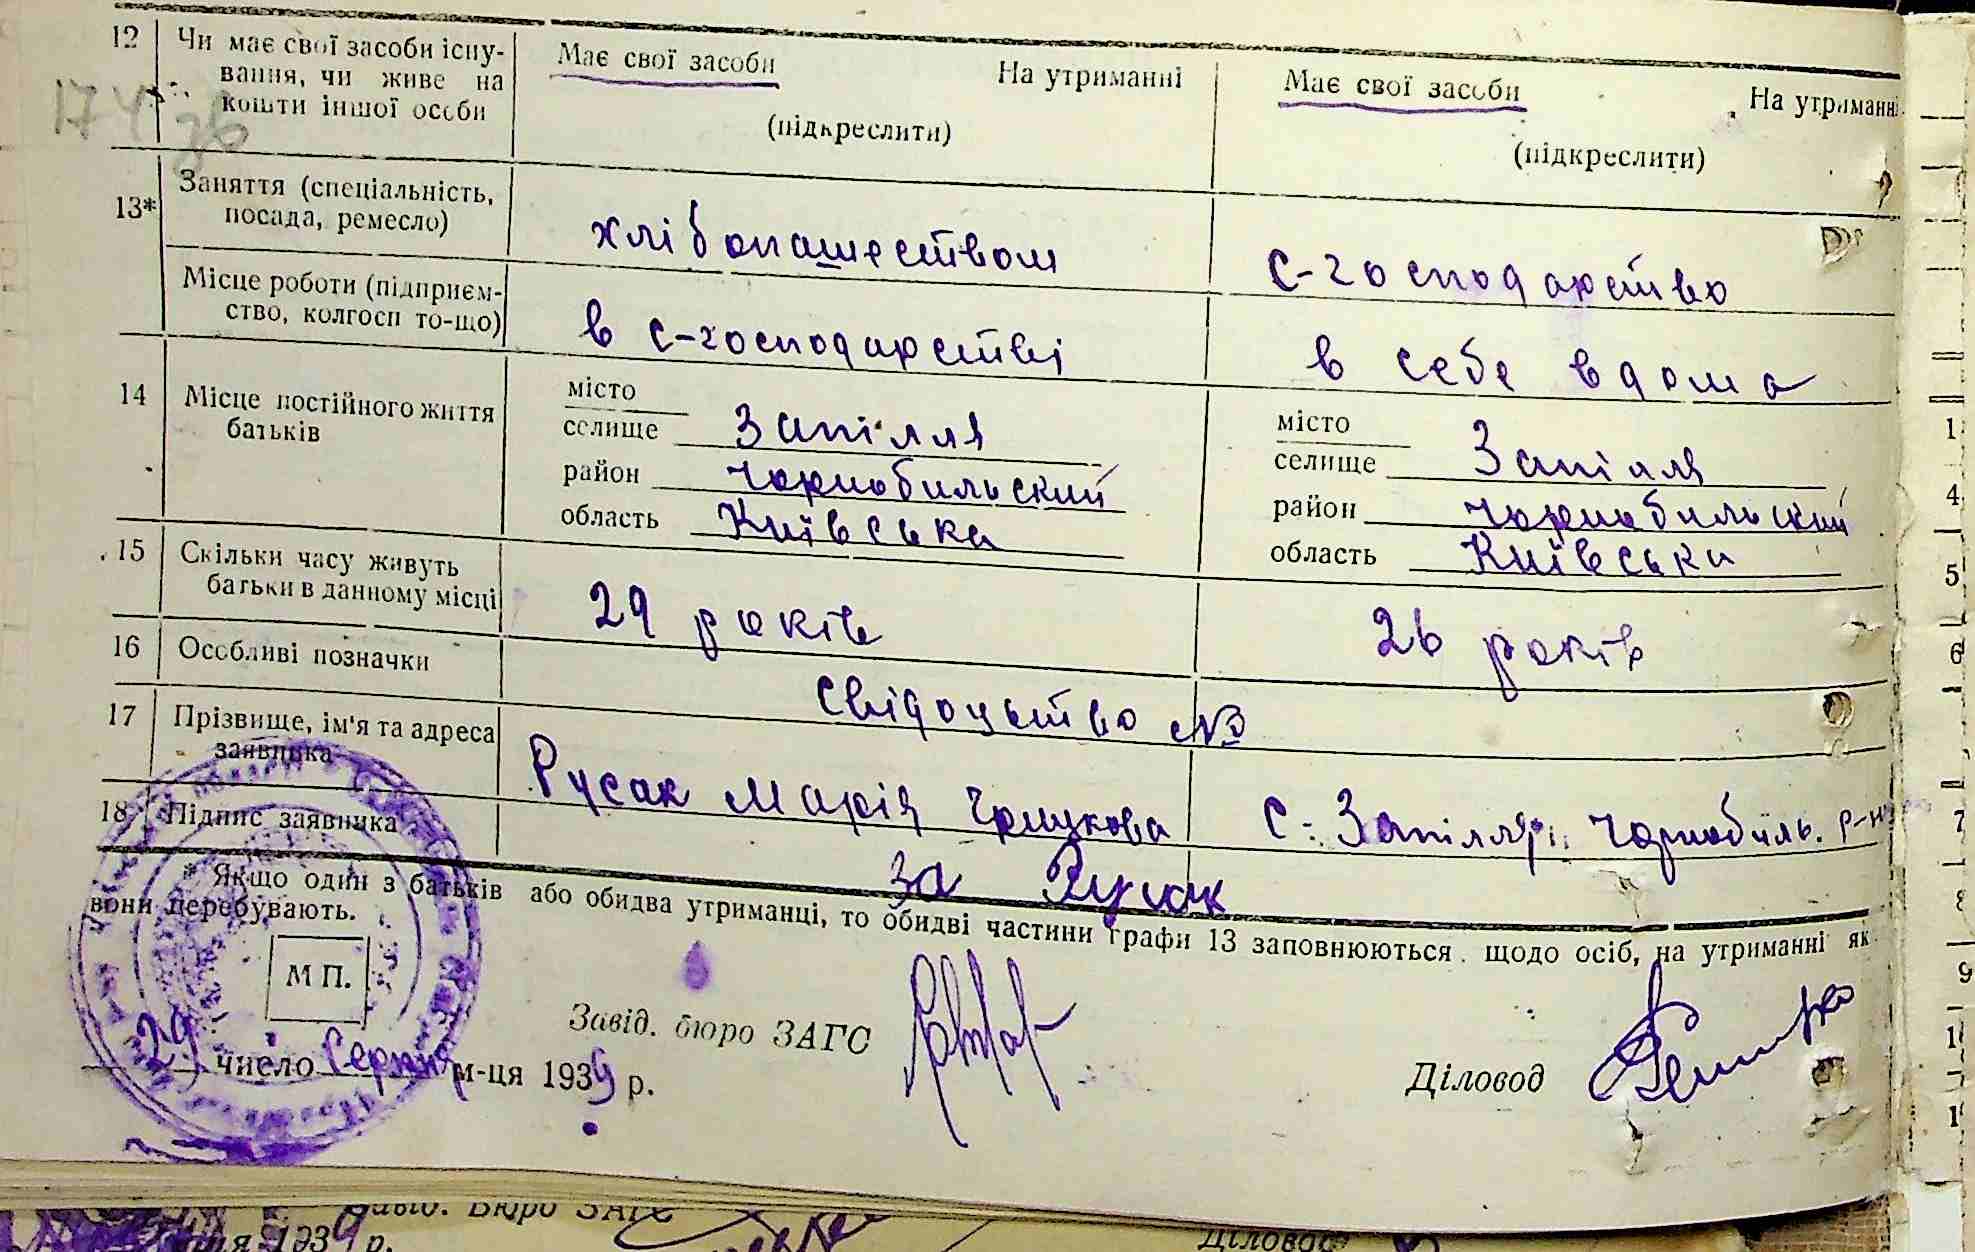 12 Чи має свої засоби існу-
вання, чи живе на
кошти іншої особи
Має свої засоби На утриманні
(підкреслити)
Має свої засоби На утриманні
(підкреслити)
174 зв
13* Заняття (спеціальність,
посада, ремесло)
хлібопашеством
с-господарство
Місце роботи (підприєм-
ство, колгосп то-що)
в с-господарстві
в себе вдома
14 Місце постійного життя
батьків
місто
селище Запілля
район Чорнобильский
область Київська
місто
селище Запілля
район Чорнобильский
область Київська
15 Скільки часу живуть
батьки в данному місці
29 років
26 років
16 Особливі позначки
Свідоцьтво №
17 Прізвище, ім'я та адреса
заявника
Русак Марія Грицкова
с. Запілля Чорнобиль. р-н
18 Підпис заявника
за Русак
* Якщо один з батьків або обидва утриманці, то обидві частини графи 13 заповнюються щодо осіб, на утриманні як
вони перебувають.
М П.
Завід. бюро ЗАГС
29 число Серпня м-ця 1939 р.
Діловод
Завід. Бюро ЗАГС
1939 р.
Діловод
1
4
5
6
7
8
9